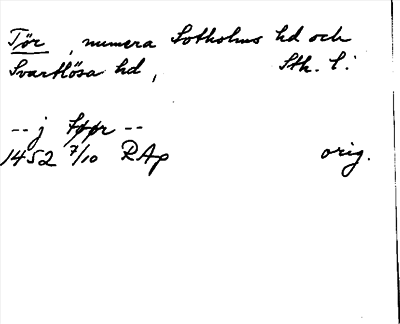 Tör, numera Sotholms hd och
Svartlösa hd, Sth. l:
-- j --
1452 7/10 RAp orig.